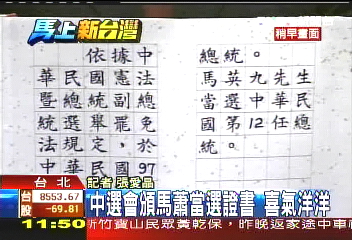 馬上新台灣
稍早畫面
依據中
華民國憲法
暨總統副總
統選舉罷免
法規定，於
中華民國97
總統。
馬英九先生
當選中華民
國第12任總
統。
台北
記者 張愛晶
台股 8553.67
-69.81
中選會頒馬蕭當選證書 喜氣洋洋
11:50
新竹寶山民眾黃乾保，昨晚返家途中